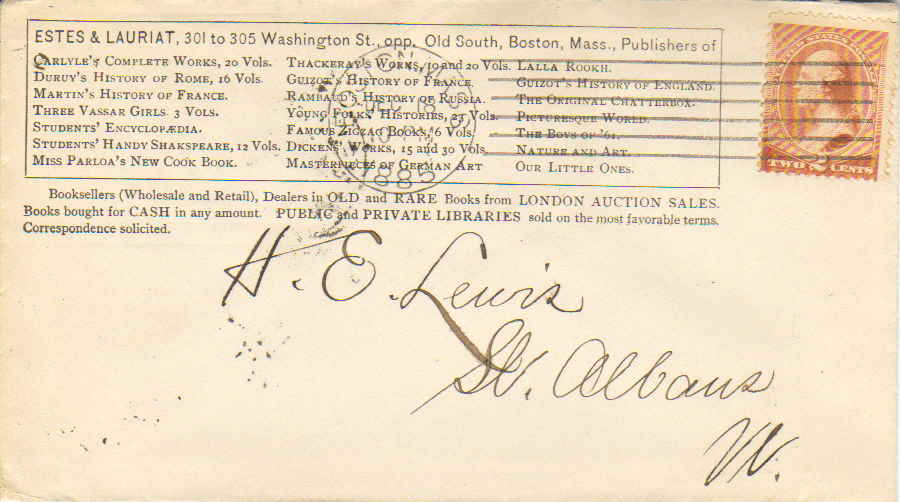 ESTES & LAURIAT, 301 to 305 Washington St., opp. Old South, Boston, Mass., Publishers of
CARLYLE'S COMPLETE WORKS, 20 VOLS.
DURUY'S HISTORY OF ROME, 16 VOLS.
MARTIN'S HISTORY OF FRANCE.
THREE VASSAR GIRLS 3 VOLS.
STUDENTS' ENCYCLOPÆDIA.
STUDENTS' HANDY SHAKSPEARE, 12 VOLS.
MISS PARLOA'S NEW COOK BOOK.
THACKERAY'S WORKS, 10 AND 20 VOLS.
GUIZOT'S HISTORY OF FRANCE.
RAMBAUD'S HISTORY OF RUSSIA.
YOUNG FOLKS' HISTORIES, 23 VOLS.
FAMOUS ZIGZAG BOOKS, 6 VOLS.
DICKENS' WORKS, 15 AND 30 VOLS.
MASTERPIECES OF GERMAN ART
LALLA ROOKH.
GUIZOT'S HISTORY OF ENGLAND.
THE ORIGINAL CHATTERBOX.
PICTURESQUE WORLD.
THE BOYS OF '61.
NATURE AND ART.
OUR LITTLE ONES.
Booksellers (Wholesale and Retail), Dealers in OLD and RARE Books from LONDON AUCTION SALES.
Books bought for CASH in any amount. PUBLIC and PRIVATE LIBRARIES sold on the most favorable terms.
Correspondence solicited.
1885
UNITED STATES POSTAGE
TWO 2 CENTS
H. E. Lewis
St. Albans
Vt.